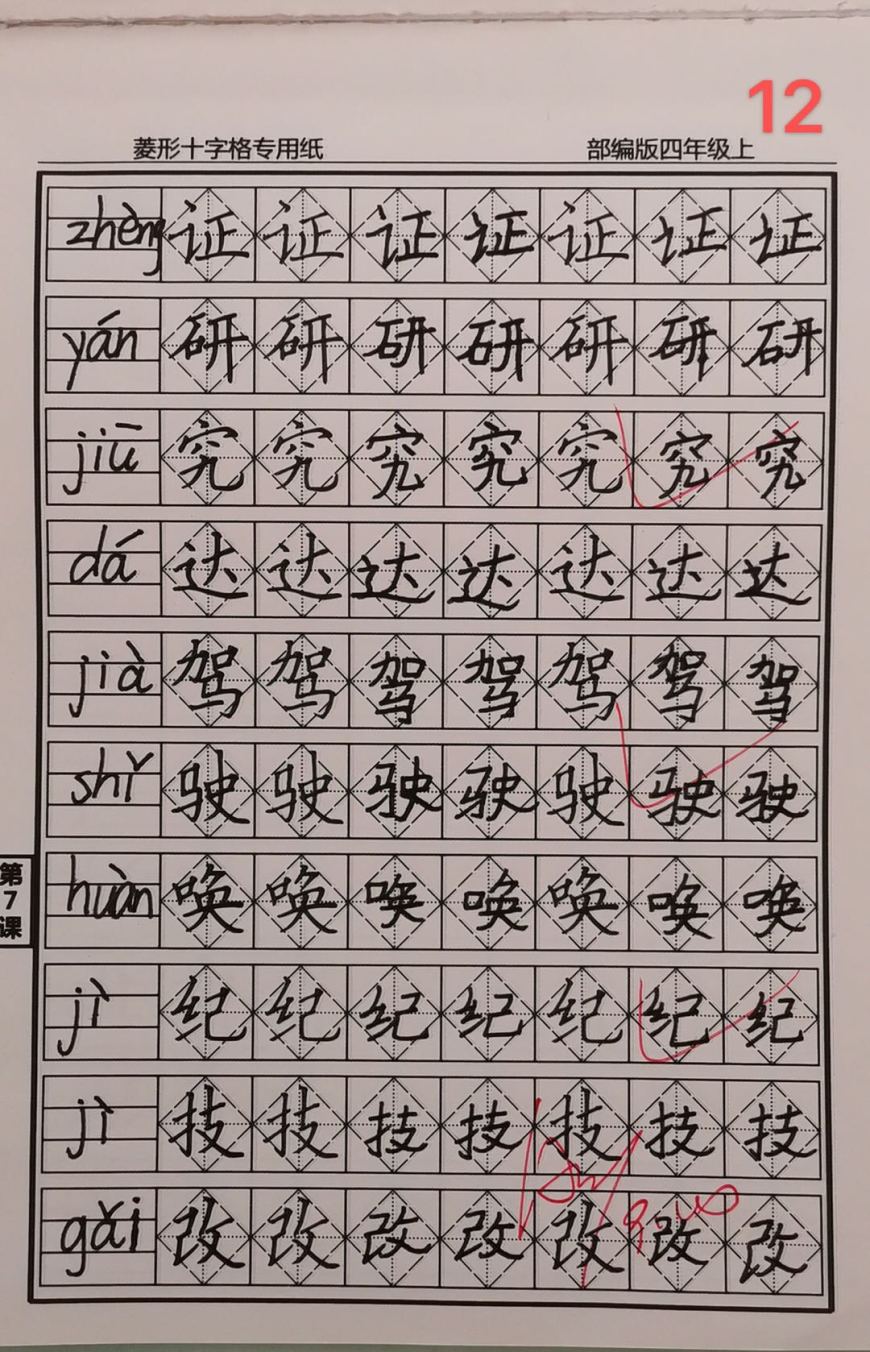 12
菱形十字格专用纸 部编版四年级上
zhèng 证 证 证 证 证 证 证
yán 研 研 研 研 研 研 研
jiū 究 究 究 究 究 究 究
dá 达 达 达 达 达 达 达
jià 驾 驾 驾 驾 驾 驾 驾
shǐ 驶 驶 驶 驶 驶 驶 驶
huàn 唤 唤 唤 唤 唤 唤 唤
第7课
jì 纪 纪 纪 纪 纪 纪 纪
jì 技 技 技 技 技 技 技
gǎi 改 改 改 改 改 改 改